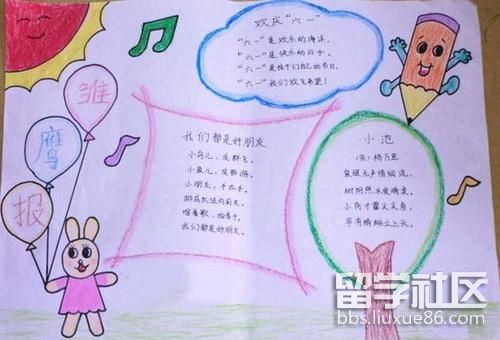 欢庆“六一”
“六一”是欢乐的海洋,
“六一”是快乐的日子,
“六一”是孩子们自己的节日,
“六一”我们放飞希望!
雏
鹰
报
我们都是好朋友
小鸟儿,成群飞。
小鱼儿,成群游。
小朋友,手拉手。
排成队伍向前走。
唱着歌,拍着手,
我们都是好朋友。
小池
(宋)杨万里
泉眼无声惜细流,
树阴照水爱晴柔。
小荷才露尖尖角,
早有蜻蜓立上头。
留学社区
bbs.liuxue86.com